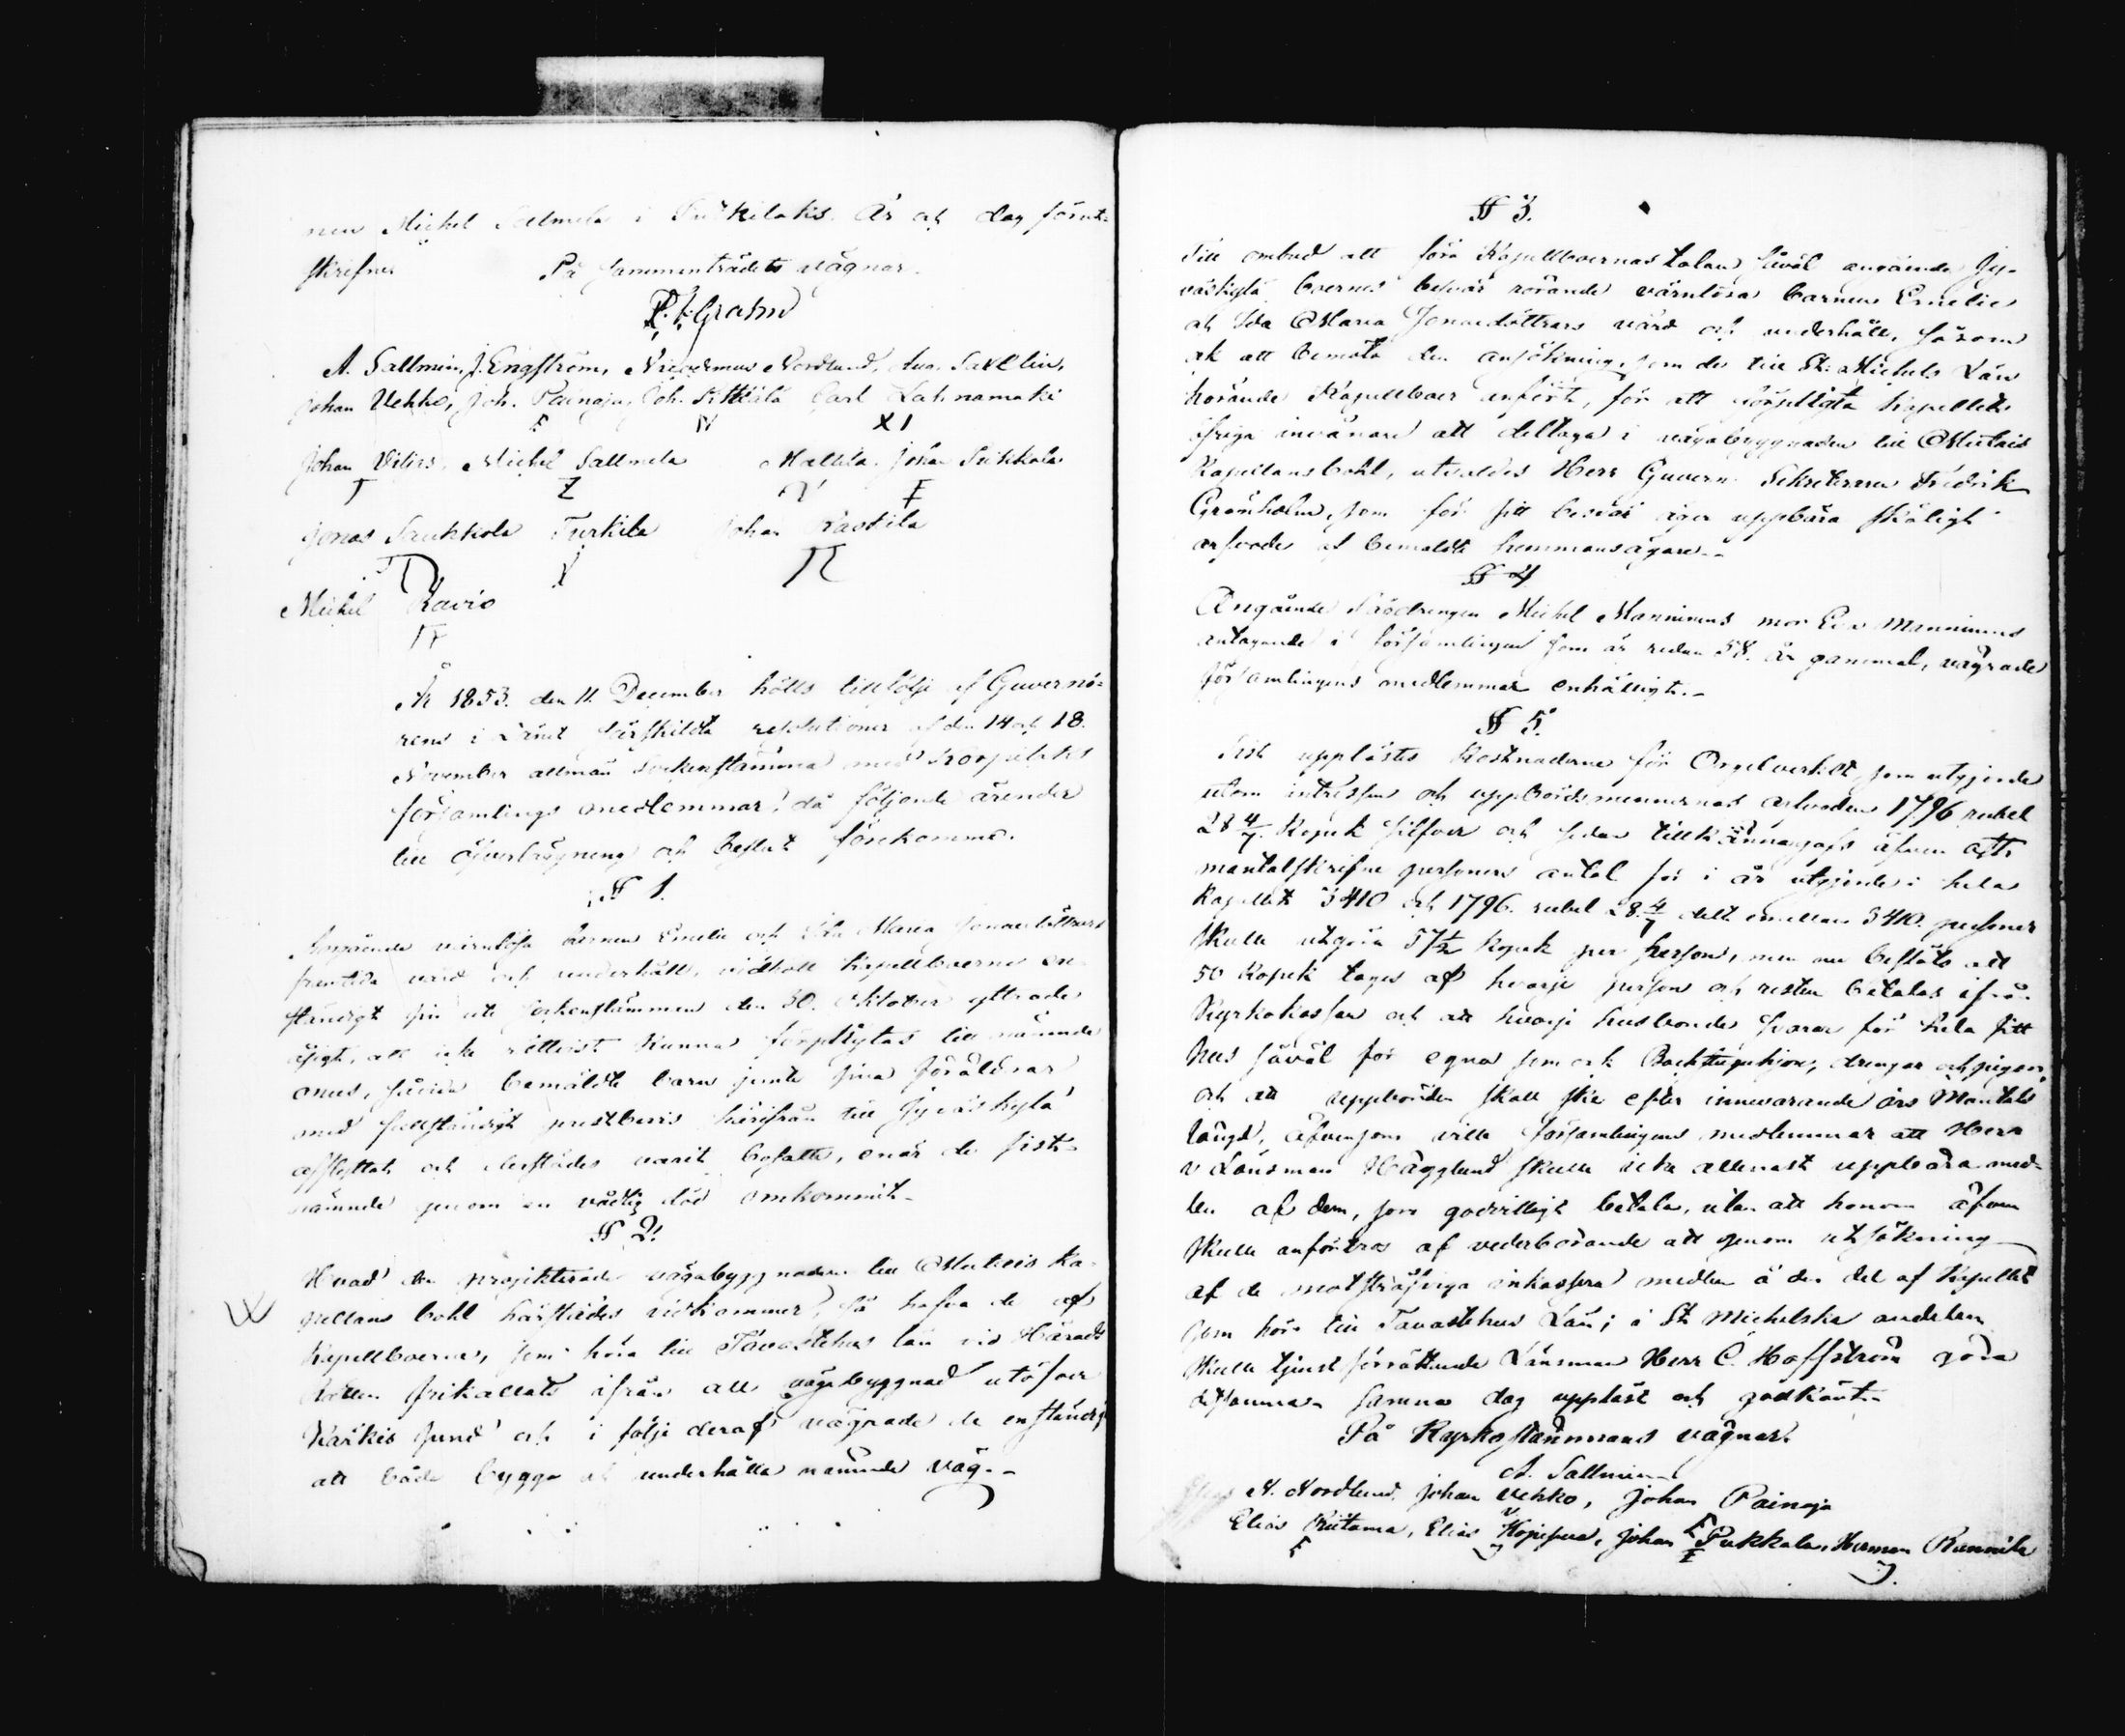 nen Michel Sallmela i Putkilaks. År och dag förut-
skrifne. På Sammanträdets vägnar.
Grahn
A. Sallmin, J. Engström, Nicodemus Nordlund, Aug. Saxelin,
Johan Vehko, Joh. Painaja, Joh. Carl Lahnamäki
Johan Michel Sallmela Mattila. Johan Sukkola
Jonas Saukkola Turkila Johan Raskila
Michel Ravio
År 1853. den 11. December hölls till följe af Guvernö-
rens i Länet särskildta resolutioner af den 14 och 18.
November allmän Sockenstämma med Korpilaks
församlings medlemmar, då följande ärender
till öfvervägning och beslut förekommo.
§ 1.
Angående värnlösa barnen Emelie och Ida Maria Jonaedöttrars
framtida vård och underhåll, vidhöll Kapellboerne en-
ständigt sin uti sockenstämman den 30. Oktober yttrade
åsigt, att icke rättvist kunna förpligtas till nämnde
onus, såvida bemäldte barn jemte sina föräldrar
med fullständigt prestbevis härifrån till Jyväskylä
afflyttat och derstädes varit bosatte, enär de sist-
nämnde genom en vådlig död omkommit.-
§ 2.
Hvad den projekterade vägabyggnaden till Mutais Ka-
pellans bohl härstädes vidkommer, så hafva de af
Kapellboerne, som höra till Tavastehus län vid Härads
Rätten frikallats ifrån all vägabyggnad utöfver
Kärkis sund och i följe deraf vägrade de enständigt
att både bygga och underhålla nämnde väg.-
§ 3.
Till ombud att föra Kapellboernas talan såväl angående Jy-
väskylä boernes besvär rörande värnlösa barnen Emelie
och Ida Maria Jonaedöttrars vård och underhåll, såsom
ock att bemöta den ansökning, som de till St. Michels Län
hörande Kapellboer anfört, för att förpligta Kapellets
öfriga invånare att deltaga i vägabyggnaden till Mutais
Kapellansbohl, utvaldes Herr Guvern. Sekreteraren Fredrik
Grönholm, som för sitt besvär äger uppbära skäligt
arfvode af bemäldte hemmansägare.-
§ 4
Angående Michel Manninens mor Eva Manninens
antagande i församlingen som är redan 58. år gammal, vägrade
församlingens medlemmar enhälligt.-
§ 5.
Sist upplästes Kostnaderne för Orgelverket, som utgjorde
utom intressen och uppbördsmännernas arfvoden 1796 rubel
28 4/7 Kopek silfver och sedan tillkännagafs äfven att
mantalskrifne personers antal för i år utgjorde i hela
Kapellet 3410 och 1796. rubel 28 4/7 delt emellan 3410. personer
skulle utgöra kopek per person, men nu beslöts att
50 Kopek tages af hvarje person och resten betalas ifrån
Kyrkokassan och att hvarje husbonde svarar för hela sitt
hus såväl för egna som ock Backstuguhjon, drengar och pigor,
och att uppbörden skall ske efter innevarande års Mantals
längd, äfvensom ville församlingens medlemmar att Herr
v Länsman Hägglund skulle icke allenast uppbära med-
len af dem, som godvilligt betala, utan att honom äfven
skulle anförtros af vederbörande att genom utsökning
af de motsträfviga inkassera medlen å den del af Kapellet
som hör till Tavastehus Län; i St Michelska andelen
skulle tjenst förrättande Länsman Herr C. Hoffström göra
detsamma. Samma dag uppläst och godkänt.-
På Kyrkostämmans vägnar.
A. Sallmin
N. Nordlund. Johan Vehko, Johan Painaja
Elias Riitama, Elias Johan Pukkala, Herman Runnila